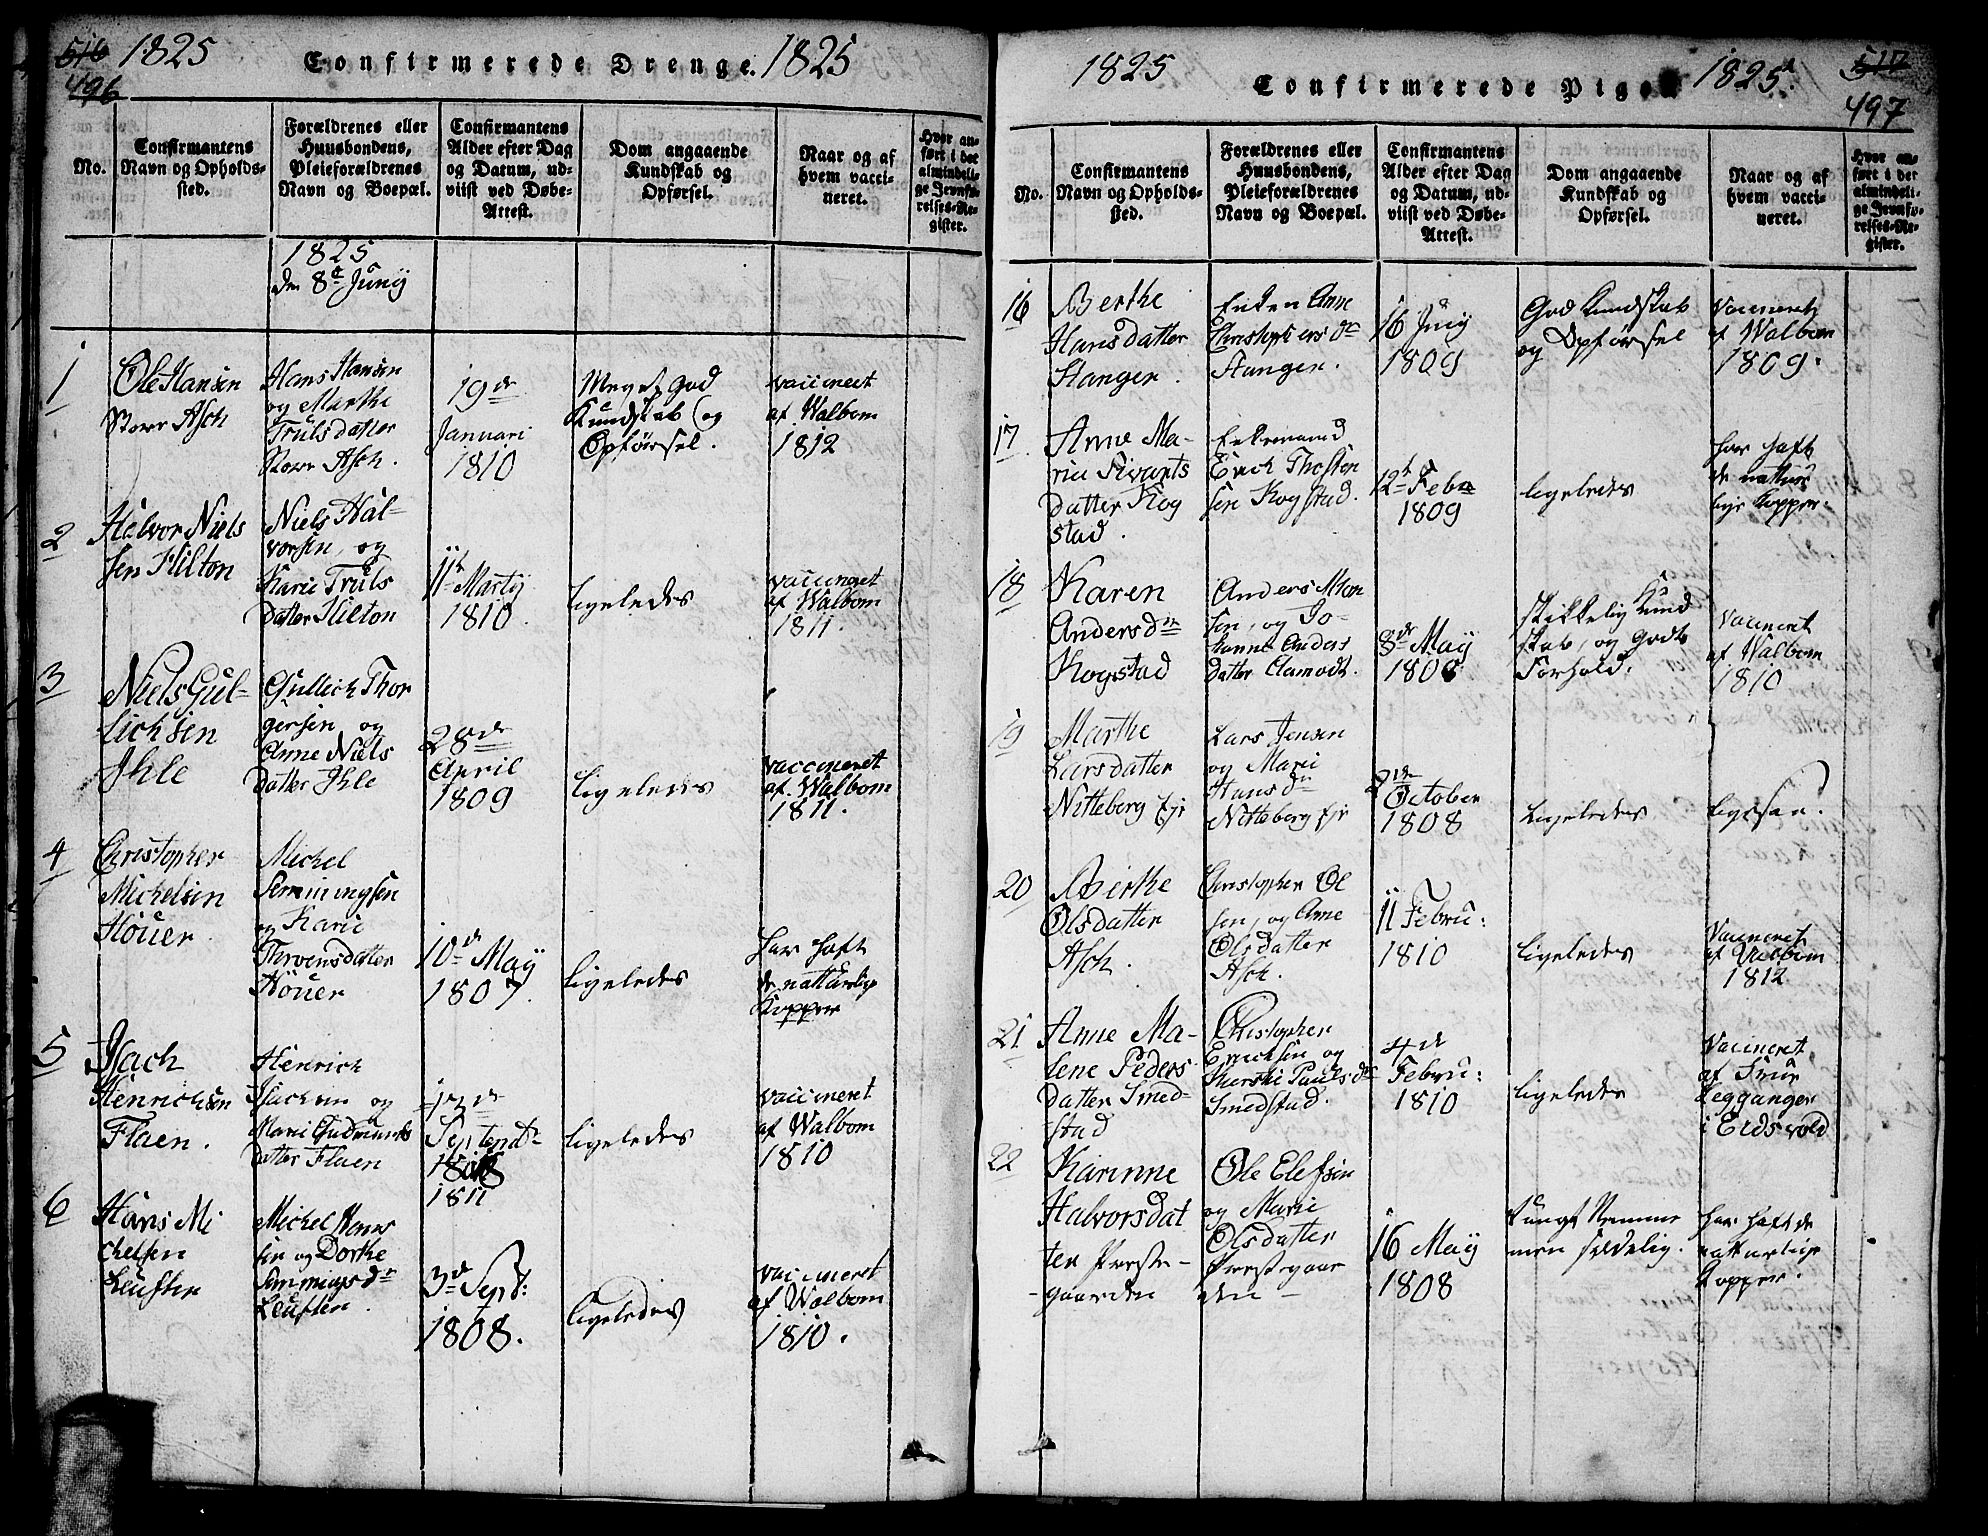 516 1825 Confirmerede Drenge. 1825
496
No.
Confirmantens
Navn og Opholds-
sted.
Forældrenes eller
Huusbondens,
Pleieforældrenes
Navn og Boepæl.
Confirmantens
Alder efter Dag
og Datum, ud-
viist ved Døbe-
Attest.
Dom angaaende
Kundskab og
Opførsel.
Naar og af
hvem vacci-
neret.
Hvor an-
ført i det
almindeli-
ge Jevnfø-
relses-Re-
gister.
1825
den 8de Junij
1
Ole Hansen
Store Asch
Hans Hansen
og Marthe
Trulsdatter
Store Asch.
19de
Januari
1810
Meget god
Kundskab og
Opførsel.
vaccineret
af Walbom
1812
2
Halvor Niels
sen Hilton
Niels Hal-
vorsen, og
Karie Truls
datter Hilton
11t Martij
1810
ligeledes
vaccineret
af Walbom
1811.
3
Niels Gul-
lichsen
Ihle
Gullich Thor
gersen og
Anne Niels
datter Ihle
28de
April
1809
ligeledes
vaccineret
af Walbom
1811.
4
Christopher
Michelsen
Höuer
Michel
Semmingsen
og Karie
Höuer
10de Maij
1807.
ligeledes
har haft
de naturlige
Kopper
5
Isach
Henrichsen
Flaen.
Henrich
Isachsen og
Marie Gudmunds
datter Flaen
13de
1808
1811
ligeledes
vaccineret
af Walbom
1810
6
Hans Mi
chelsen
Leuften
Michel Hans
sen og Dorthe
Semmingsdr
Leuften.
3de Sept:
1808.
ligeledes
vaccineret
af Walbom
1810.
1825 Confirmerede Piger 1825 517
497
No.
Confirmantens
Navn og Opholds-
sted.
Forældrenes eller
Huusbondens,
Pleieforældrenes
Navn og Boepæl.
Confirmantens
Alder efter Dag
og Datum, ud-
viist ved Døbe-
Attest.
Dom angaaende
Kundskab og
Opførsel.
Naar og af
hvem vacci-
neret.
Hvor an-
ført i det
almindeli-
ge Jevnfø-
relses-Re-
gister.
16
Berthe
Hansdatter
Stanger.
Enken Anne
Christophersdr
Stanger.
16 Junij
1809
God Kundskab
og Opførsel
Vaccineret
af Walbom
1809.
17.
Anne Ma-
rie Sivarts
datter Kog
stad.
Enkemand
Erich Thosten
sen Kogstad.
12t Febr
1809
ligeledes
har haft
de natur
lige Kopper.
18
Karen
Andersdr
Kogstad
Anders Mon
sen, og Jo-
hanne Anders
datter Clamodt.
8de Maij
1808
skikkelig Kund
skab, og godt
Forhold.
Vaccineret
af Walbom
1810
19
Marthe
Larsdatter
Nitteberg ejr
Lars Jensen
og Marie
Hansdr
Nitteberg ejr
2de
October
1808
Ligeledes
ligesaa.
20
Birthe
Olsdatter
Asch.
Christopher Ol
sen, og Anne
Olsdatter
Asch.
11 Febru:
1810
ligeledes
Vaccineret
af Walbom
1812
21
Anne Ma-
lene Peders
datter Smed-
stad
Christopher
Erichsen og
Kirsti Paulsdr
Smedstad.
4de
Febru:
1810
ligeledes
Vaccineret
af
Legganger
i Eidsvold
22
Karinne
Halvorsdat
ter Præste-
gaarden
Ole Elefsen
og Marie
Olsdatter
Præstegaar
den -
16 Maij
1808
tungt Nemme
men sædelig.
har haft de
naturlige
Kopper.